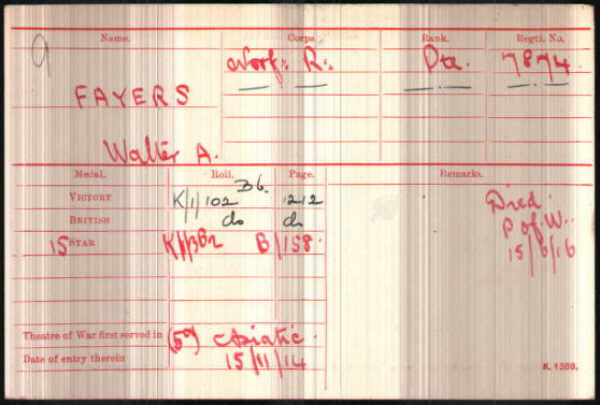 9
Name. Corps. Rank. Regtl. No.
Norf: R: Pte. 7874
FAYERS
Walter A.
Medal. Roll. Page. Remarks.
VICTORY K/1/102 B6. 1212 Died
BRITISH do do P of W.
15 STAR B/158 15/6/16
Theatre of War first served in (5a) Asiatic
Date of entry therein 15/11/14
K. 1380.